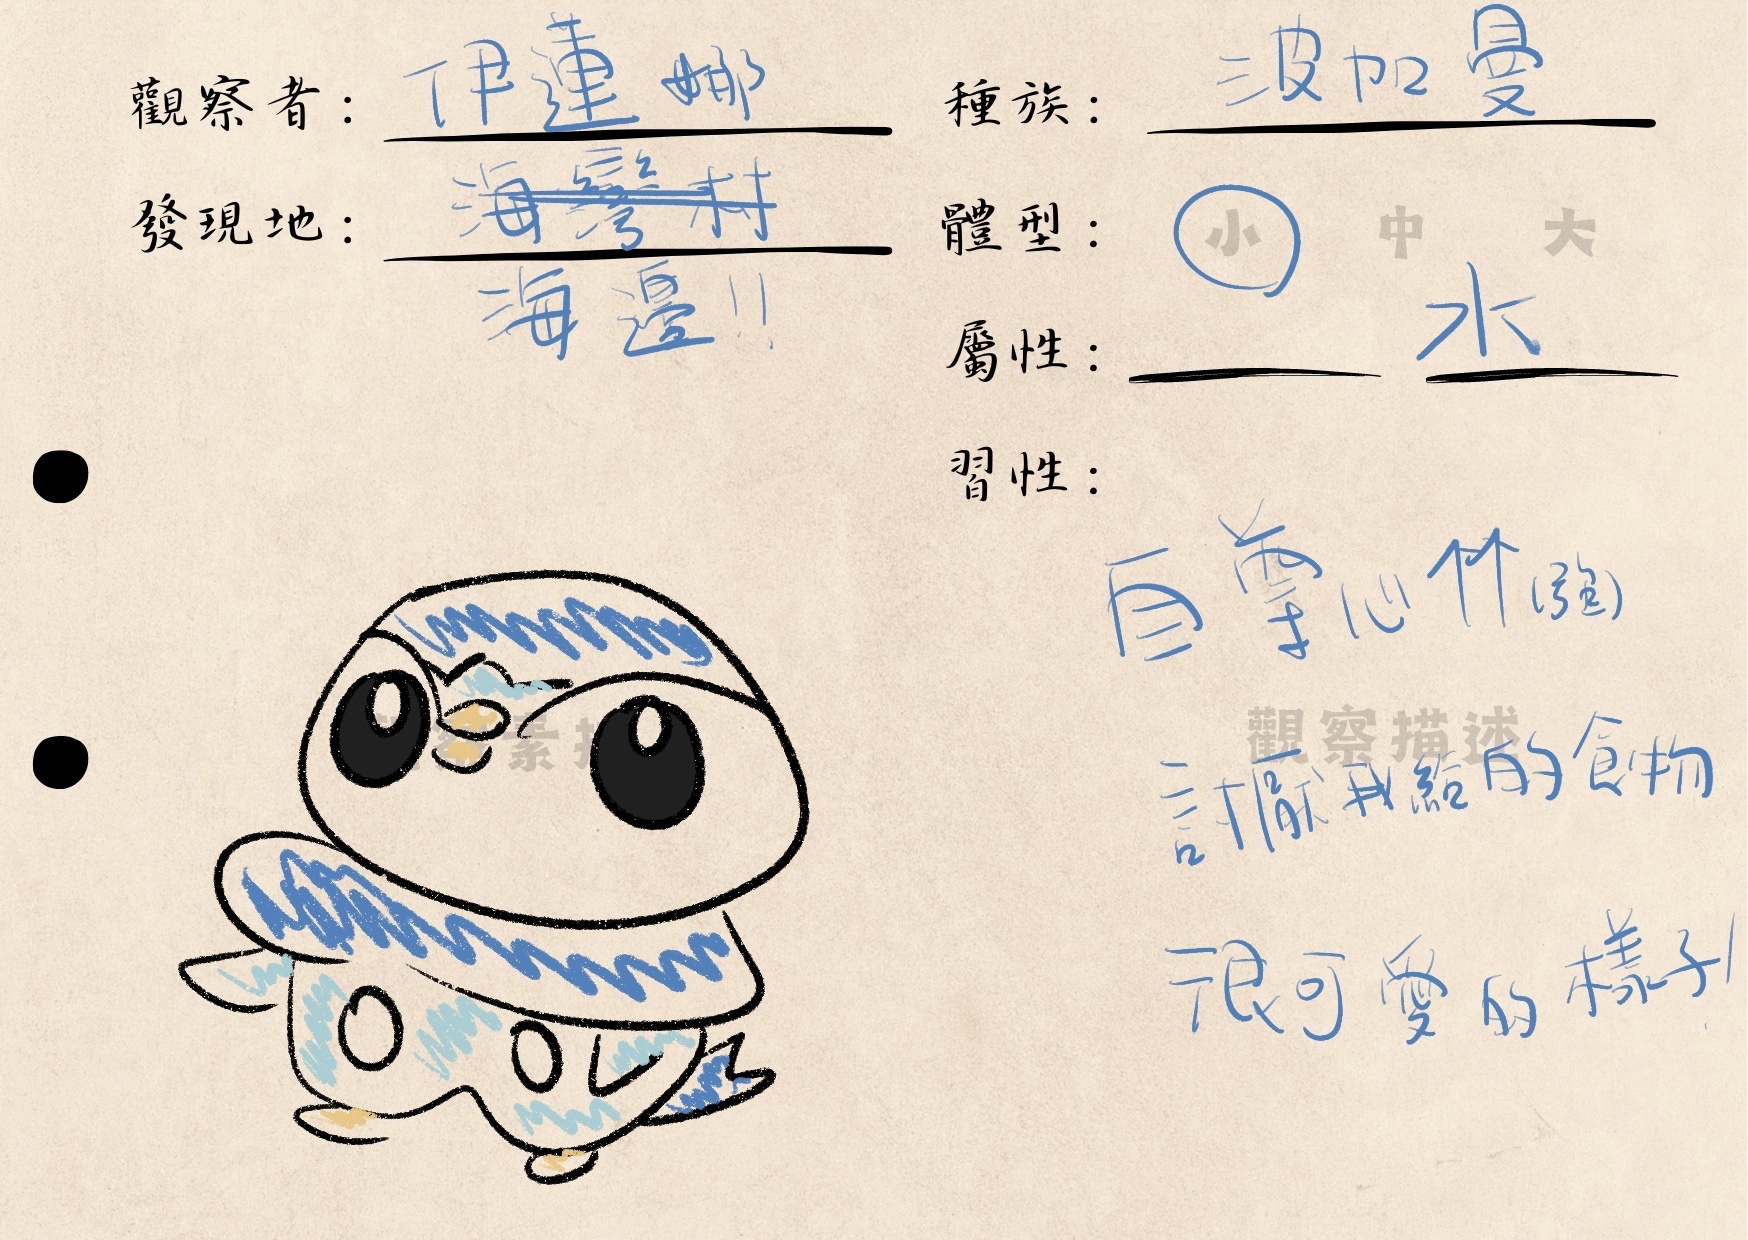 觀察者： 伊蓮娜
發現地： 海灣村
海邊!!
種族： 波加曼
體型： 小 中 大
屬性： 水
習性：
自尊心竹(強)
觀察描述
討厭我給的食物
很可愛的樣子!
素描